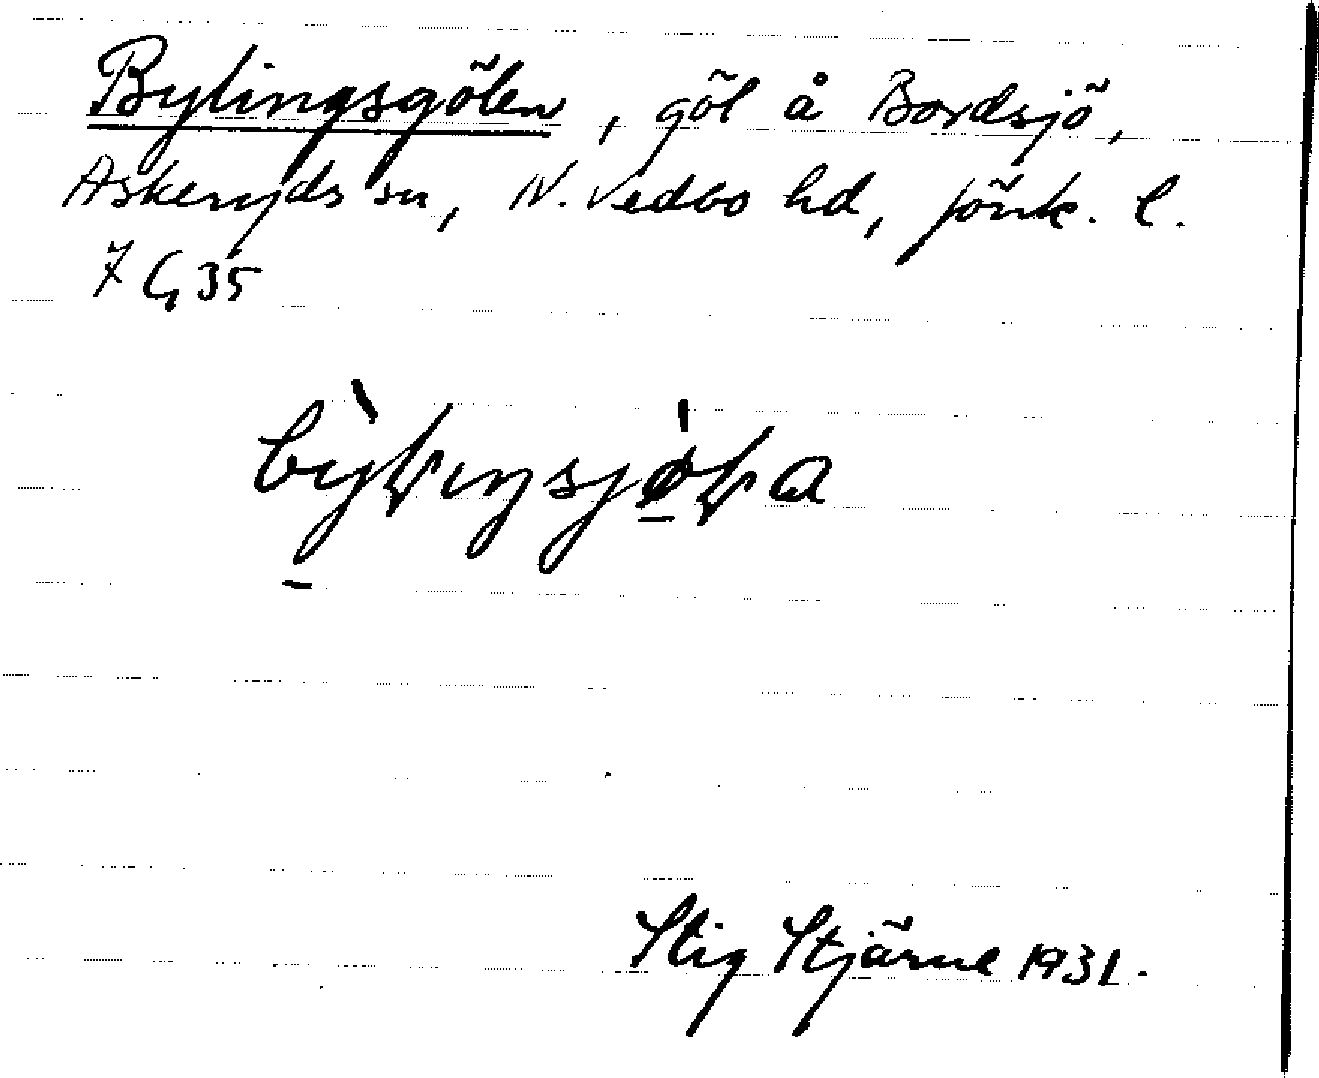 Bylingsgölen, göl å Bordsjö,
Askeryds sn, N. Vedbo hd, Jönk. l.
7 G 35
Stig Stjärne 1931.